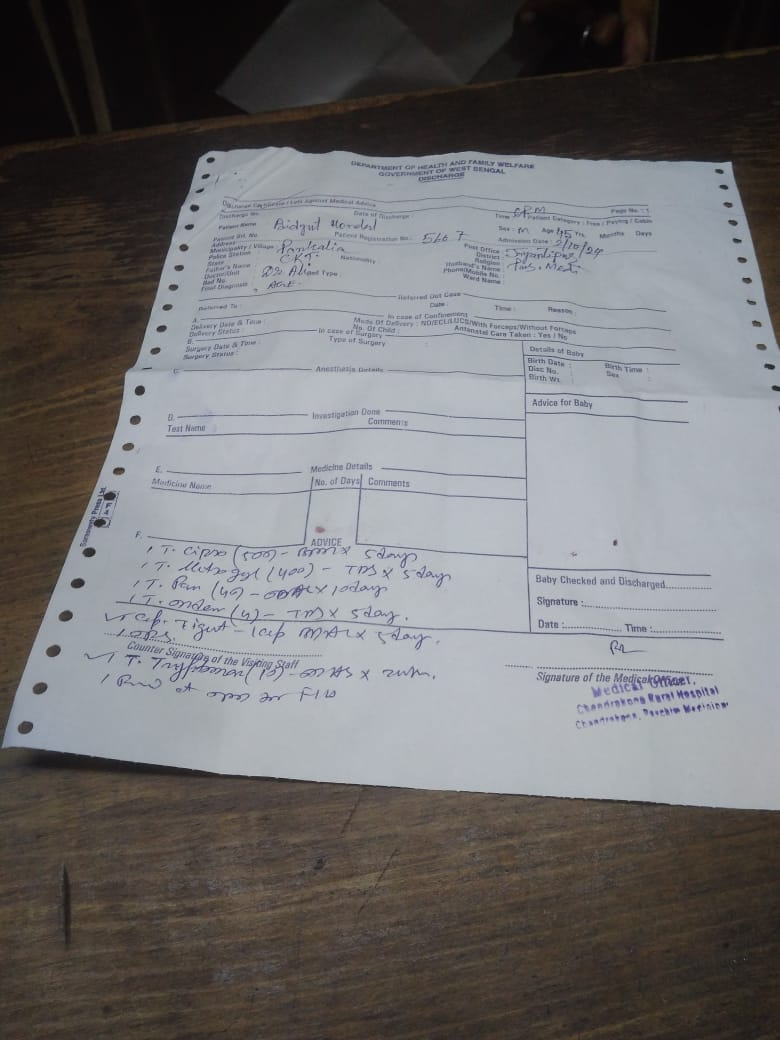 DEPARTMENT OF HEALTH AND FAMILY WELFARE
GOVERNMENT OF WEST BENGAL
DISCHARGE
Page No. : 1
Discharge No. Date of Discharge : Time : Patient Category : Free / Paying / Cabin
Patient Name : Mondal Sex : M Age 45 Yrs. Months Days
Patient Registration No. : 5607 Admission Date : 2/10/24
Address : Post Office :
Municipality / Village : District :
Police Station : CKT. Nationality Religion :
State Husband's Name :
Father's Name : Phone/Mobile No. :
Doctor/Unit Type : Ward Name :
Bed No.
Final Diagnosis , AGE.
Referred Out Case
Referred To : Date : Time : Reason :
A. In case of Confinement
Delivery Date & Time : Mode Of Delivery : ND/ECL/LUCS/With Forceps/Without Forceps
Delivery Status : No. Of Child : Antenatal Care Taken : Yes / No
B. In case of Surgery
Surgery Date & Time : Type of Surgery :
Surgery Status :
Details of Baby
Birth Date : Birth Time :
Disc No. : Sex :
Birth Wt. :
C. Anesthesia Details
Advice for Baby
D. Investigation Done
Test Name Comments
E. Medicine Details
Medicine Name No. of Days Comments
F. ADVICE
T. Cipro (500) - x 5 days
T. Metrogyl (400) - TDS x 5 days
T. Pan (40) - x 10 days
T. Ondem (4) - TDS x 5 day.
Cap. - 1 cap x 5 day.
ORS.
Counter Signature of the Visiting Staff
T. (10) - x
Baby Checked and Discharged
Signature :
Date : Time :
Signature of the Medical Officer
Medical Officer,
Chandrakona Rural Hospital
Chandrakona, Paschim Medinipur